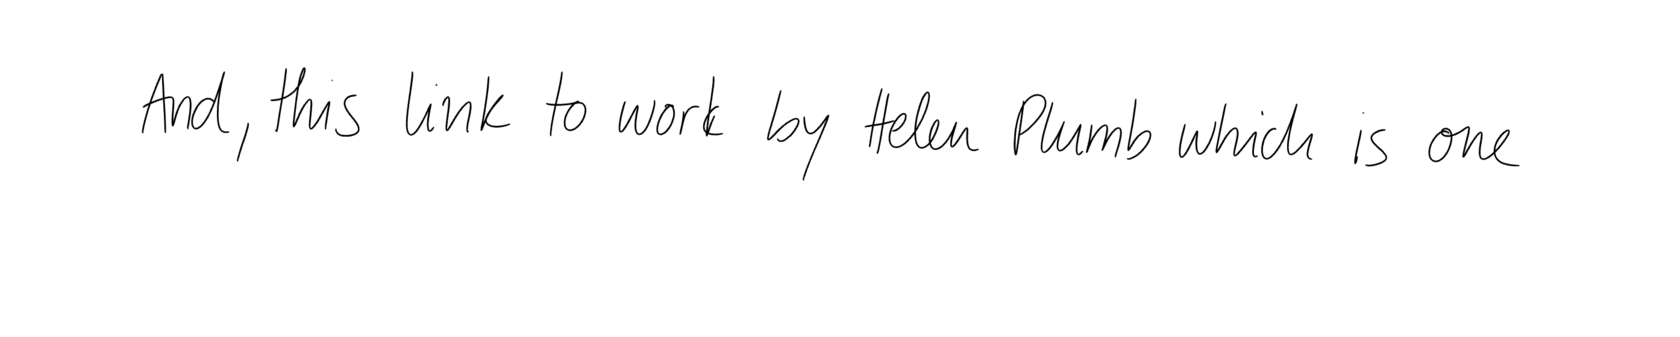 And, this link to work by Helen Plumb which is one